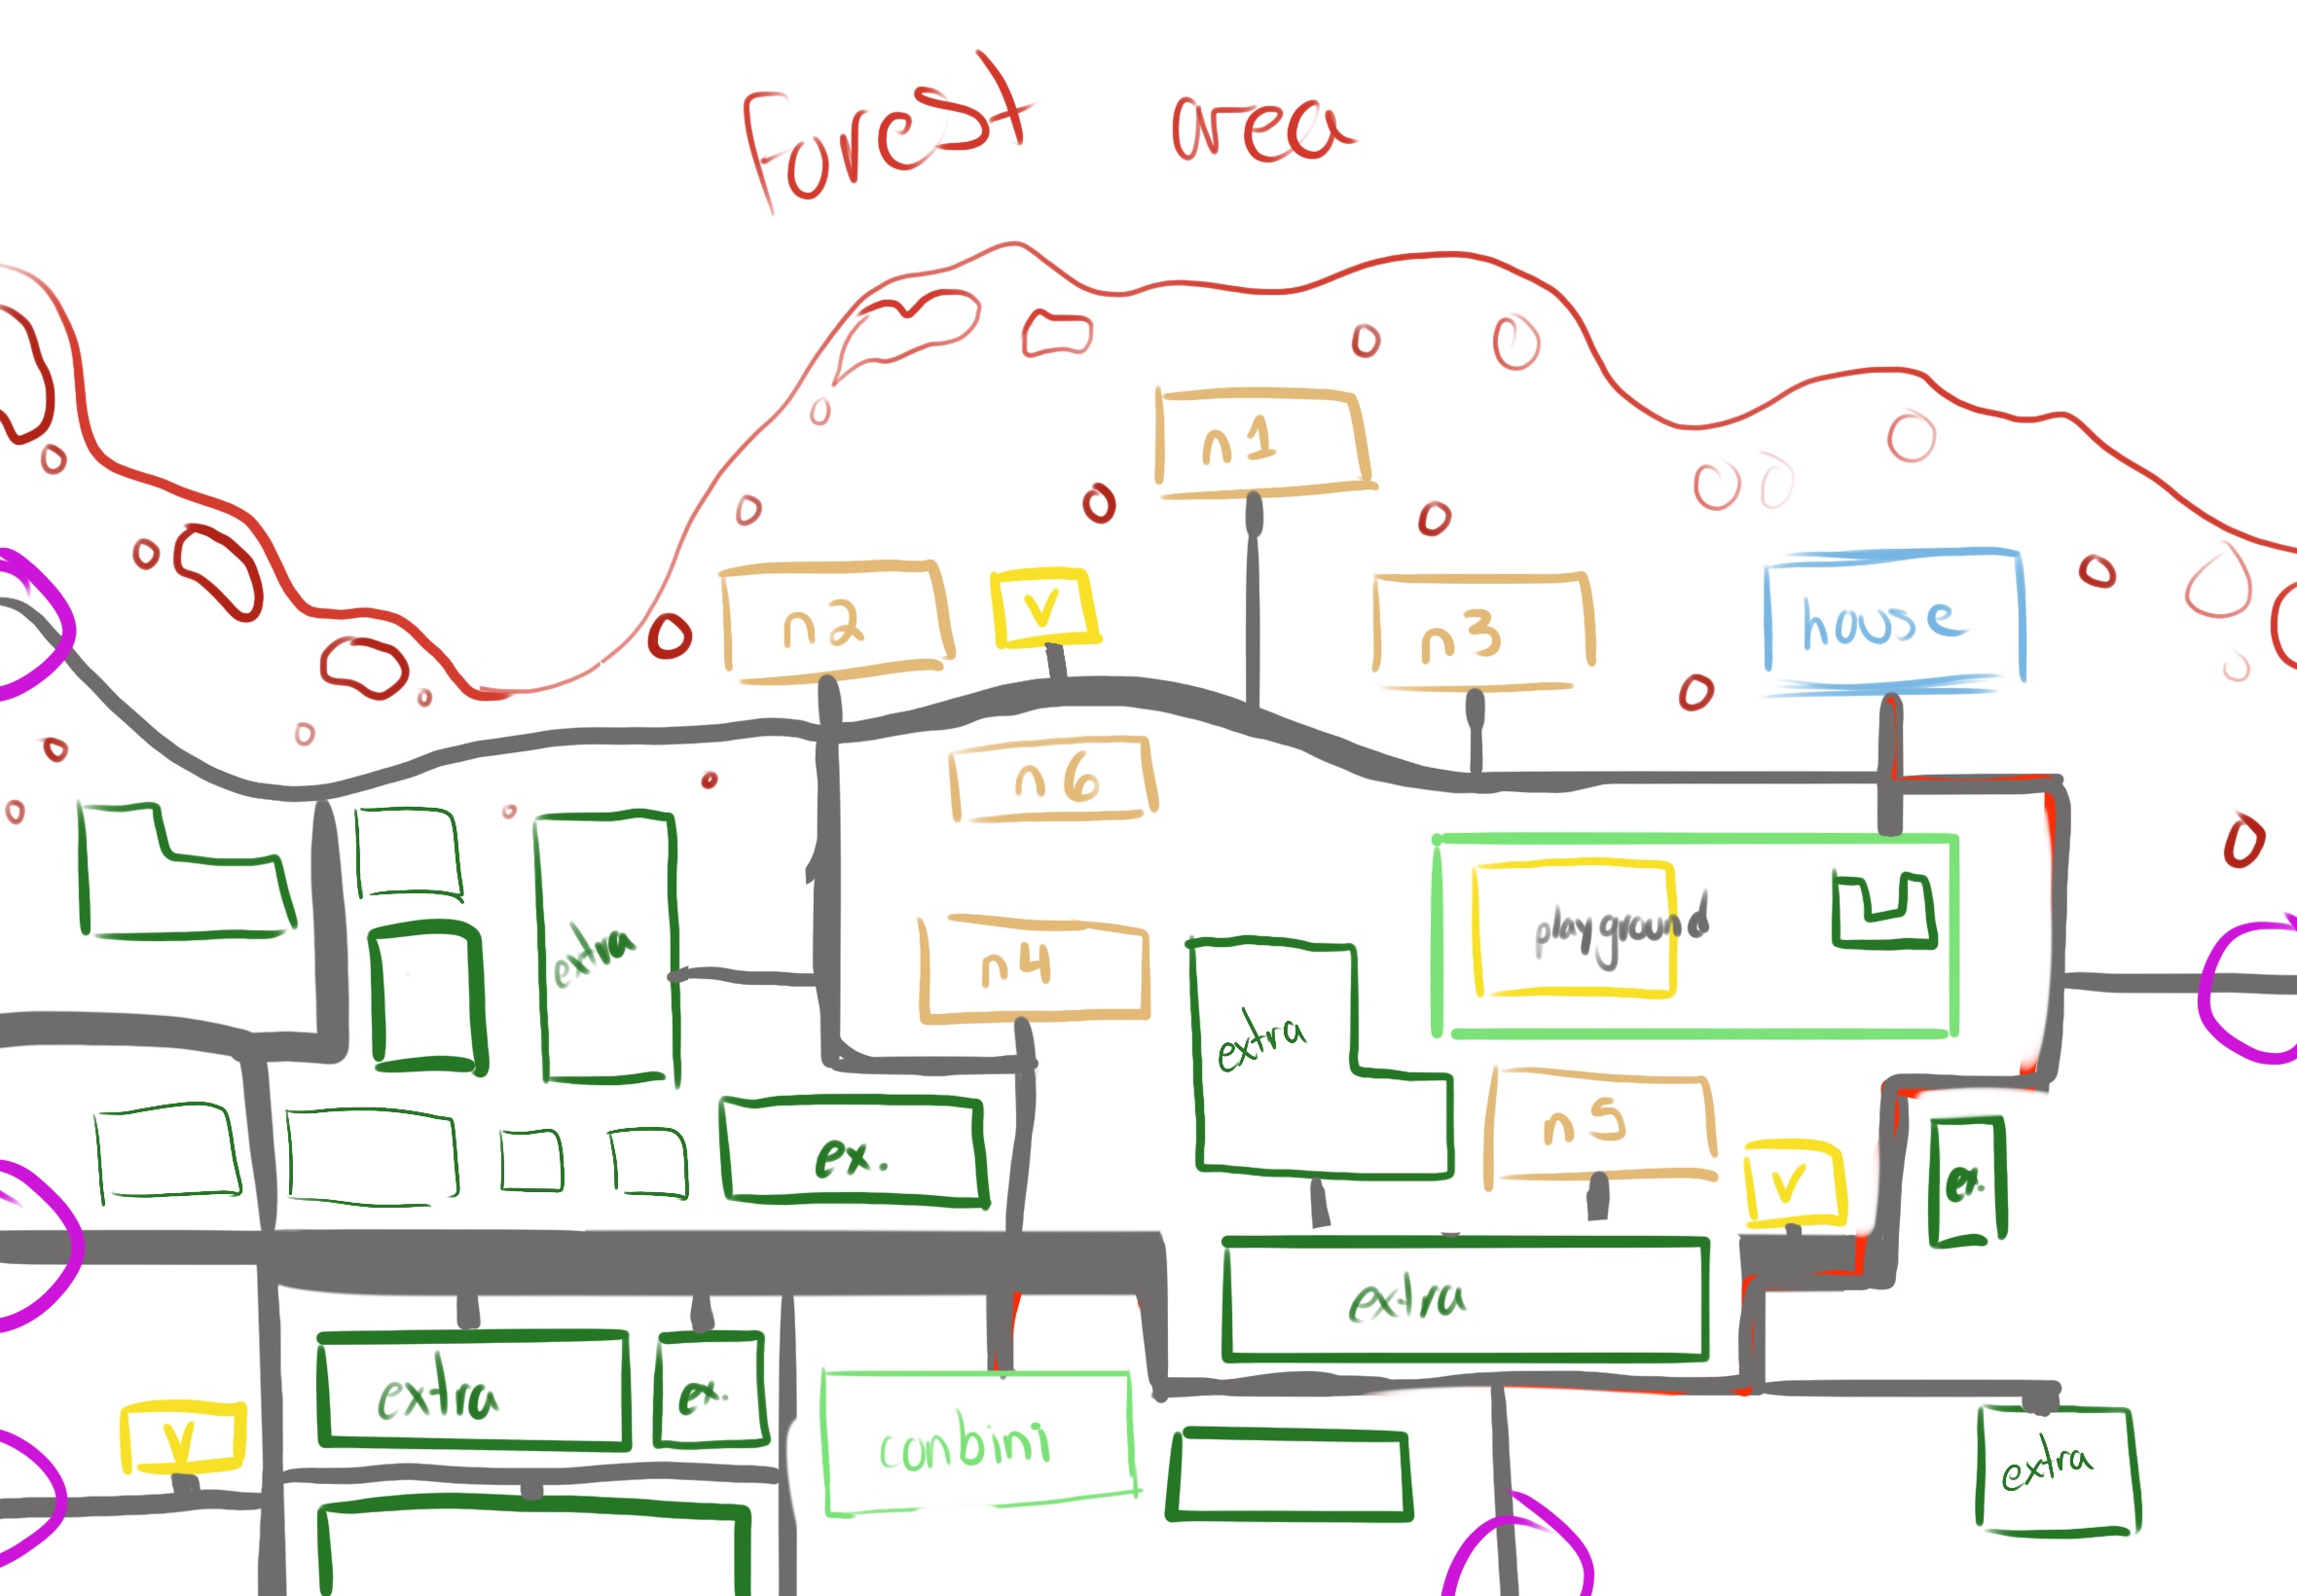 Forest area
n1
n2
v
n3
house
n6
playground
extra
n4
extra
n5
ex.
v
ex.
extra
extra
ex.
v
conbini
extra